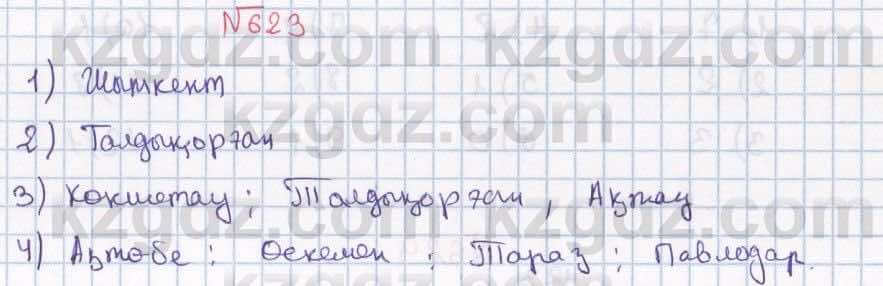 №623
1) Шымкент
2) Талдықорған
3) Көкшетау; Талдықорған, Ақтау
4) Ақтөбе: Өскемен; Тараз; Павлодар.
kzgdz.com